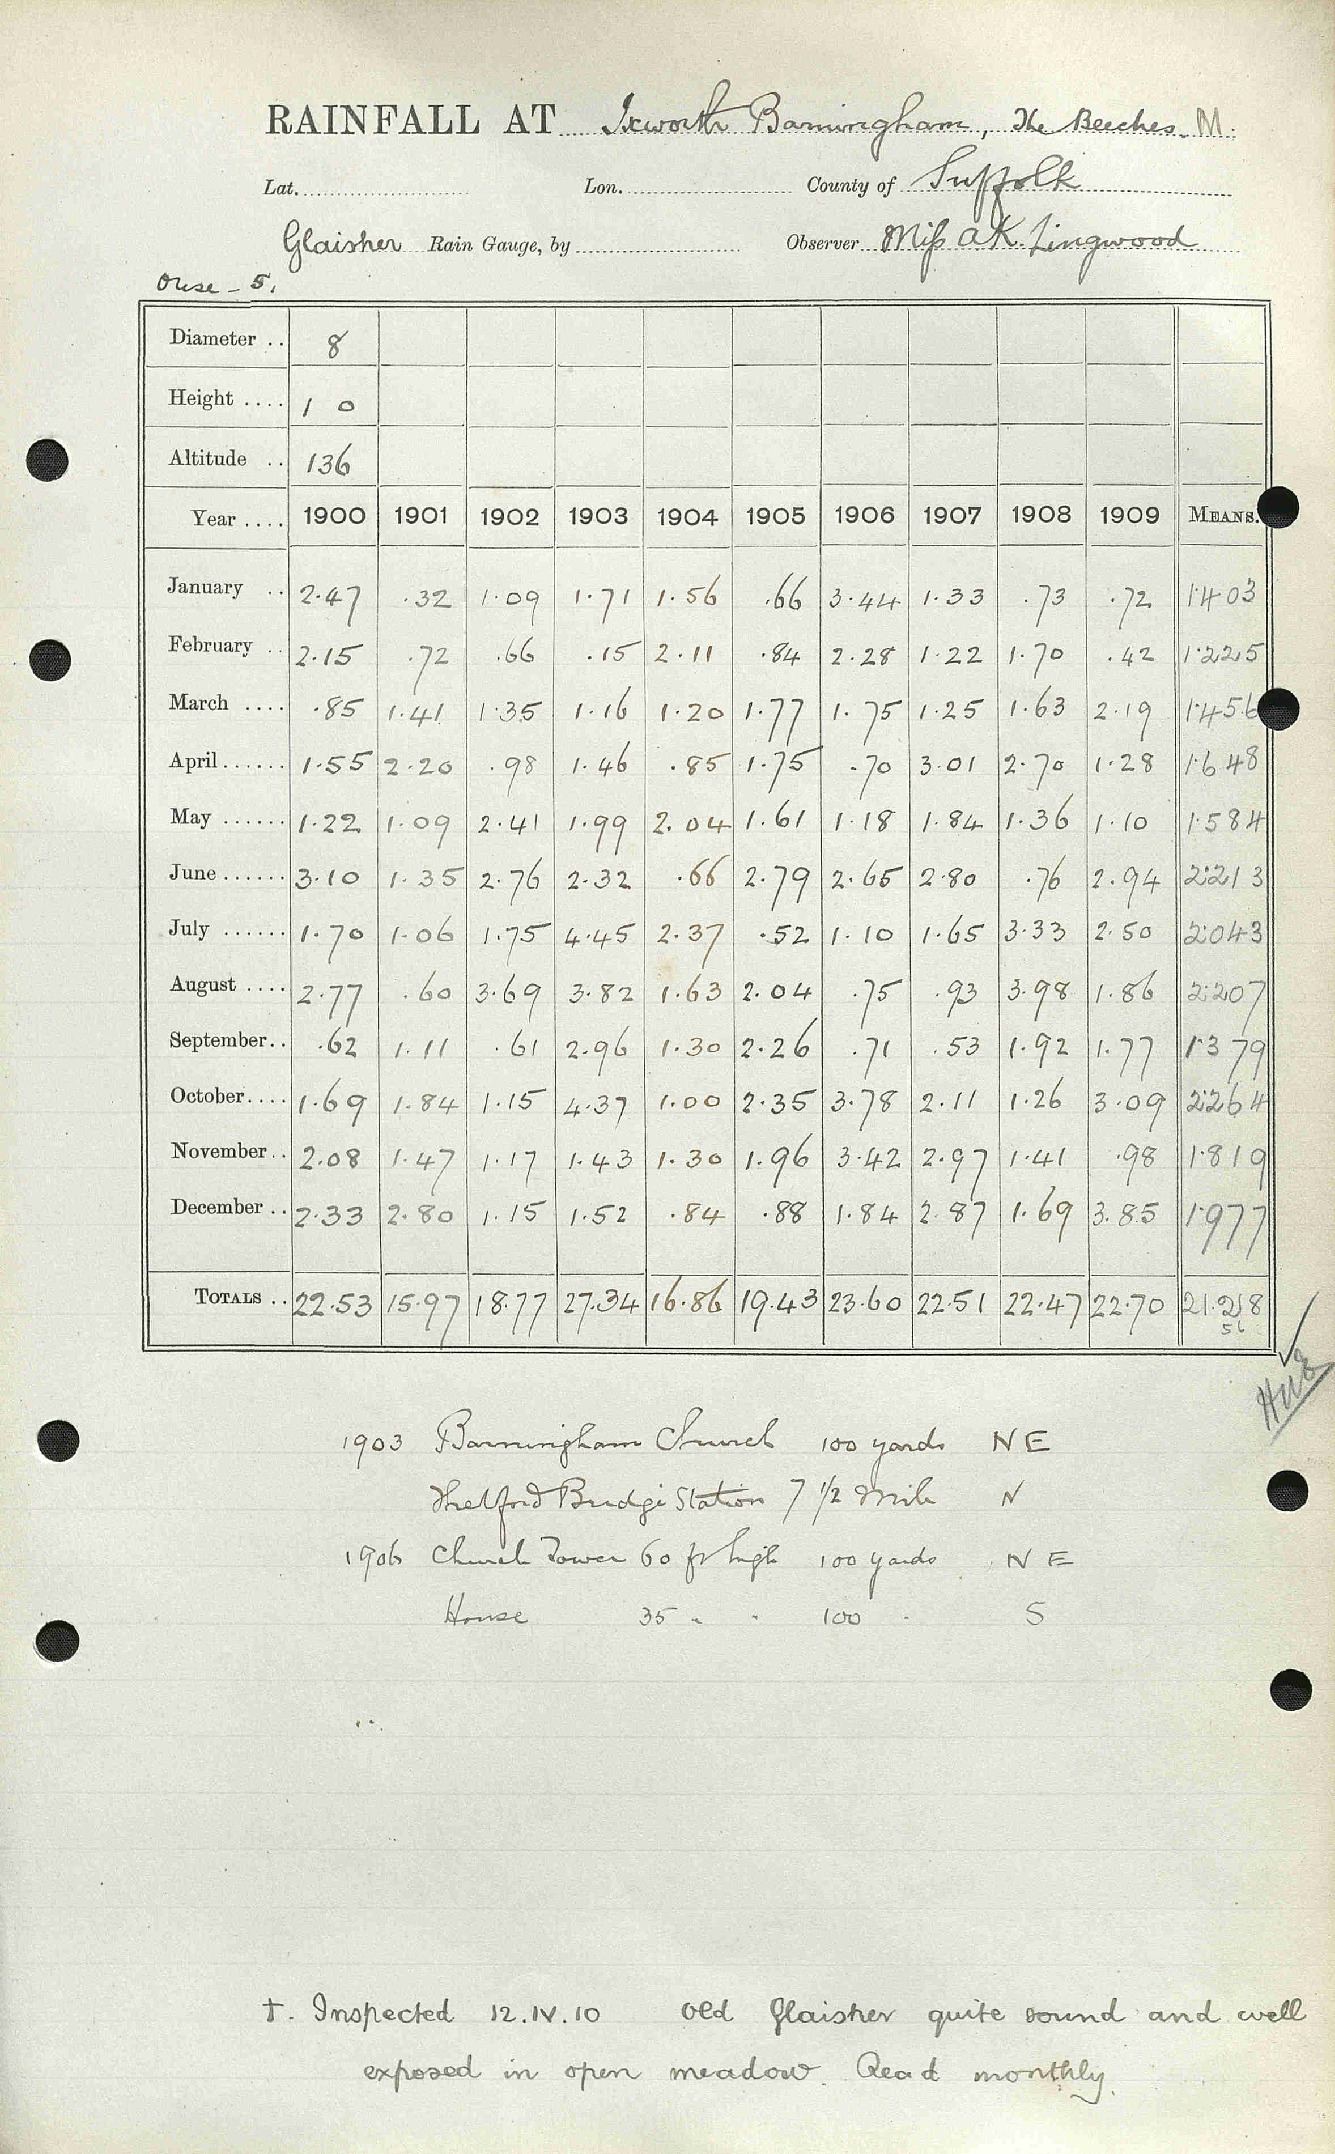 RAINFALL AT Ixworth Barningham, The Beeches. M.
Lat. Lon. County of Suffolk
Glaisher Rain Gauge, by Observer Miss A K. Lingwood
Ouse - 5.
Diameter .. 8
Height .... 1 0
Altitude .. 136
Year .... 1900 1901 1902 1903 1904 1905 1906 1907 1908 1909 MEANS.
January .. 2.47 .32 1.09 1.71 1.56 .66 3.44 1.33 .73 .72 1.403
February .. 2.15 .72 .66 .15 2.11 .84 2.28 1.22 1.70 .42 1.225
March .... .85 1.41 1.35 1.16 1.20 1.77 1.75 1.25 1.63 2.19 1.456
April ...... 1.55 2.20 .98 1.46 .85 1.75 .70 3.01 2.70 1.28 1.648
May ...... 1.22 1.09 2.41 1.99 2.04 1.61 1.18 1.84 1.36 1.10 1.584
June ...... 3.10 1.35 2.76 2.32 .66 2.79 2.65 2.80 .76 2.94 2.213
July ...... 1.70 1.06 1.75 4.45 2.37 .52 1.10 1.65 3.33 2.50 2.043
August .... 2.77 .60 3.69 3.82 1.63 2.04 .75 .93 3.98 1.86 2.207
September .. .62 1.11 .61 2.96 1.30 2.26 .71 .53 1.92 1.77 1.379
October .... 1.69 1.84 1.15 4.37 1.00 2.35 3.78 2.11 1.26 3.09 2.264
November .. 2.08 1.47 1.17 1.43 1.30 1.96 3.42 2.97 1.41 .98 1.819
December .. 2.33 2.80 1.15 1.52 .84 .88 1.84 2.87 1.69 3.85 1.977
TOTALS .. 22.53 15.97 18.77 27.34 16.86 19.43 23.60 22.51 22.47 22.70 21.218
56
1903 Barningham Church 100 yards N E
Thetford Bridge Station 7 1/2 Mile N
1906 Church Tower 60 ft high 100 yards N E
House 35 " " 100 " S
†. Inspected 12.IV.10 Old Glaisher quite sound and well
exposed in open meadow. Read monthly.